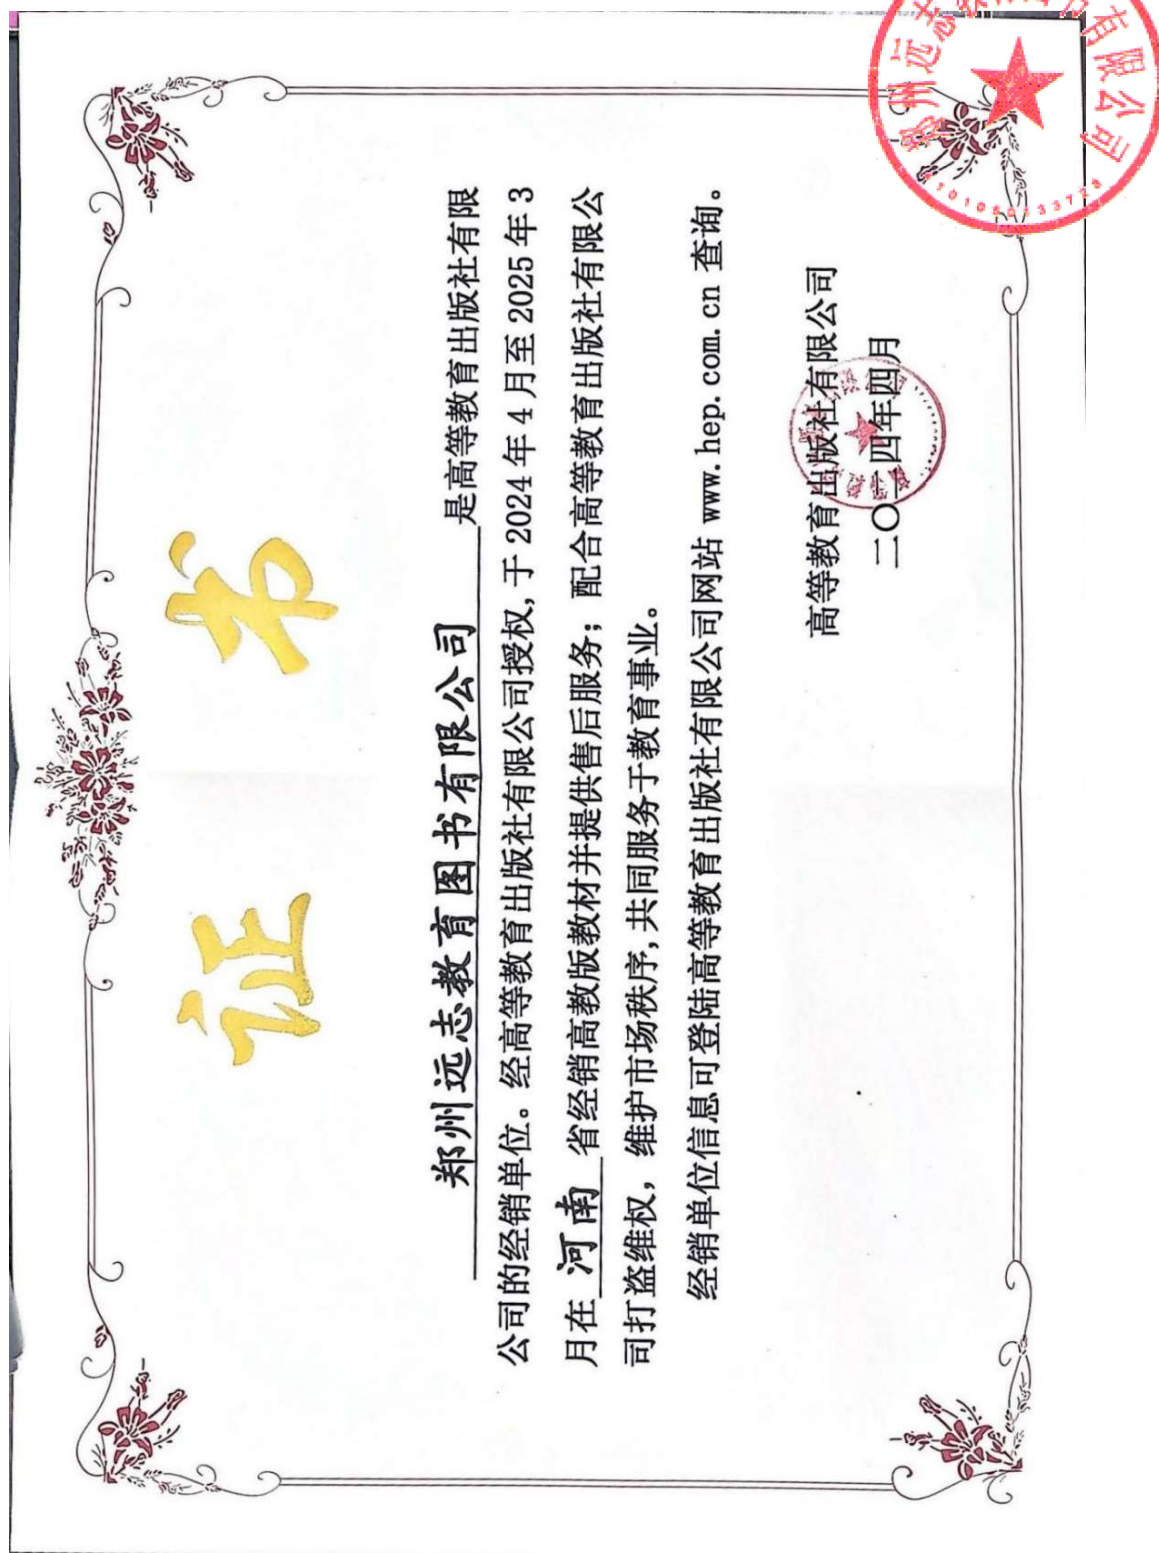 证书
郑州远志教育图书有限公司 是高等教育出版社有限
公司的经销单位。经高等教育出版社有限公司授权,于 2024 年 4 月至 2025 年 3
月在 河南 省经销高教版教材并提供售后服务；配合高等教育出版社有限公
司打盗维权，维护市场秩序,共同服务于教育事业。
经销单位信息可登陆高等教育出版社有限公司网站 www.hep.com.cn 查询。
高等教育出版社有限公司
二〇二四年四月
郑州远志教育图书有限公司